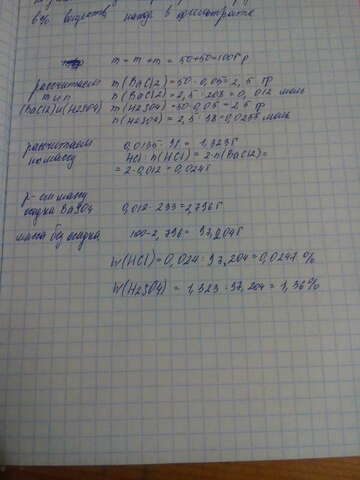 вех веществ наход в концентрате
m = m + m = 50+50=100гр
рассчитаем m(BaCl2)=50·0,05=2,5 гр
m и n n(BaCl2)=2,5:208=0,012 моль
(BaCl2)и(H2SO4) m(H2SO4)=50·0,05=2,5 гр
n(H2SO4)=2,5:98=0,0255 моль
рассчитаем 0,0135·98=1,323г
по массу HCl n(HCl)=2·n(BaCl2)=
=2·0,012=0,024г
массу
осадка BaSO4 0,012·233=2,796г
масса без осадка 100-2,796=97,204г
W(HCl)=0,024:97,204=0,0247%
W(H2SO4)=1,323:97,204=1,36%